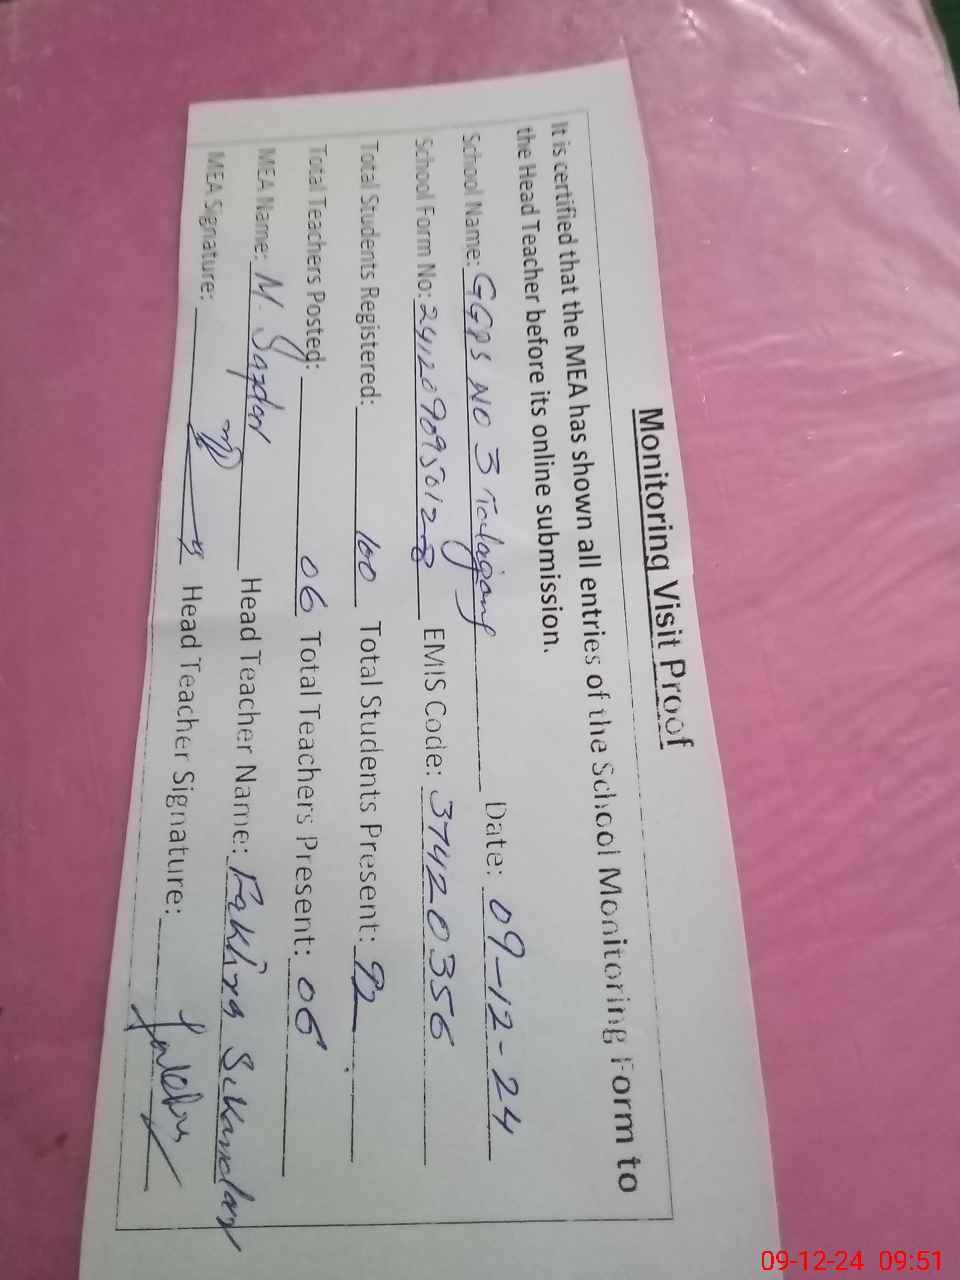 Monitoring Visit Proof
It is certified that the MEA has shown all entries of the School Monitoring Form to
the Head Teacher before its online submission.
School Name: GGPS NO 3 Talagang Date: 09-12-24
School Form No: EMIS Code: 37420356
Total Students Registered: 100 Total Students Present: 92
Total Teachers Posted: 06 Total Teachers Present: 06
MEA Name: M. Head Teacher Name: Fakhra Sikandar
MEA Signature: Head Teacher Signature:
09-12-24 09:51